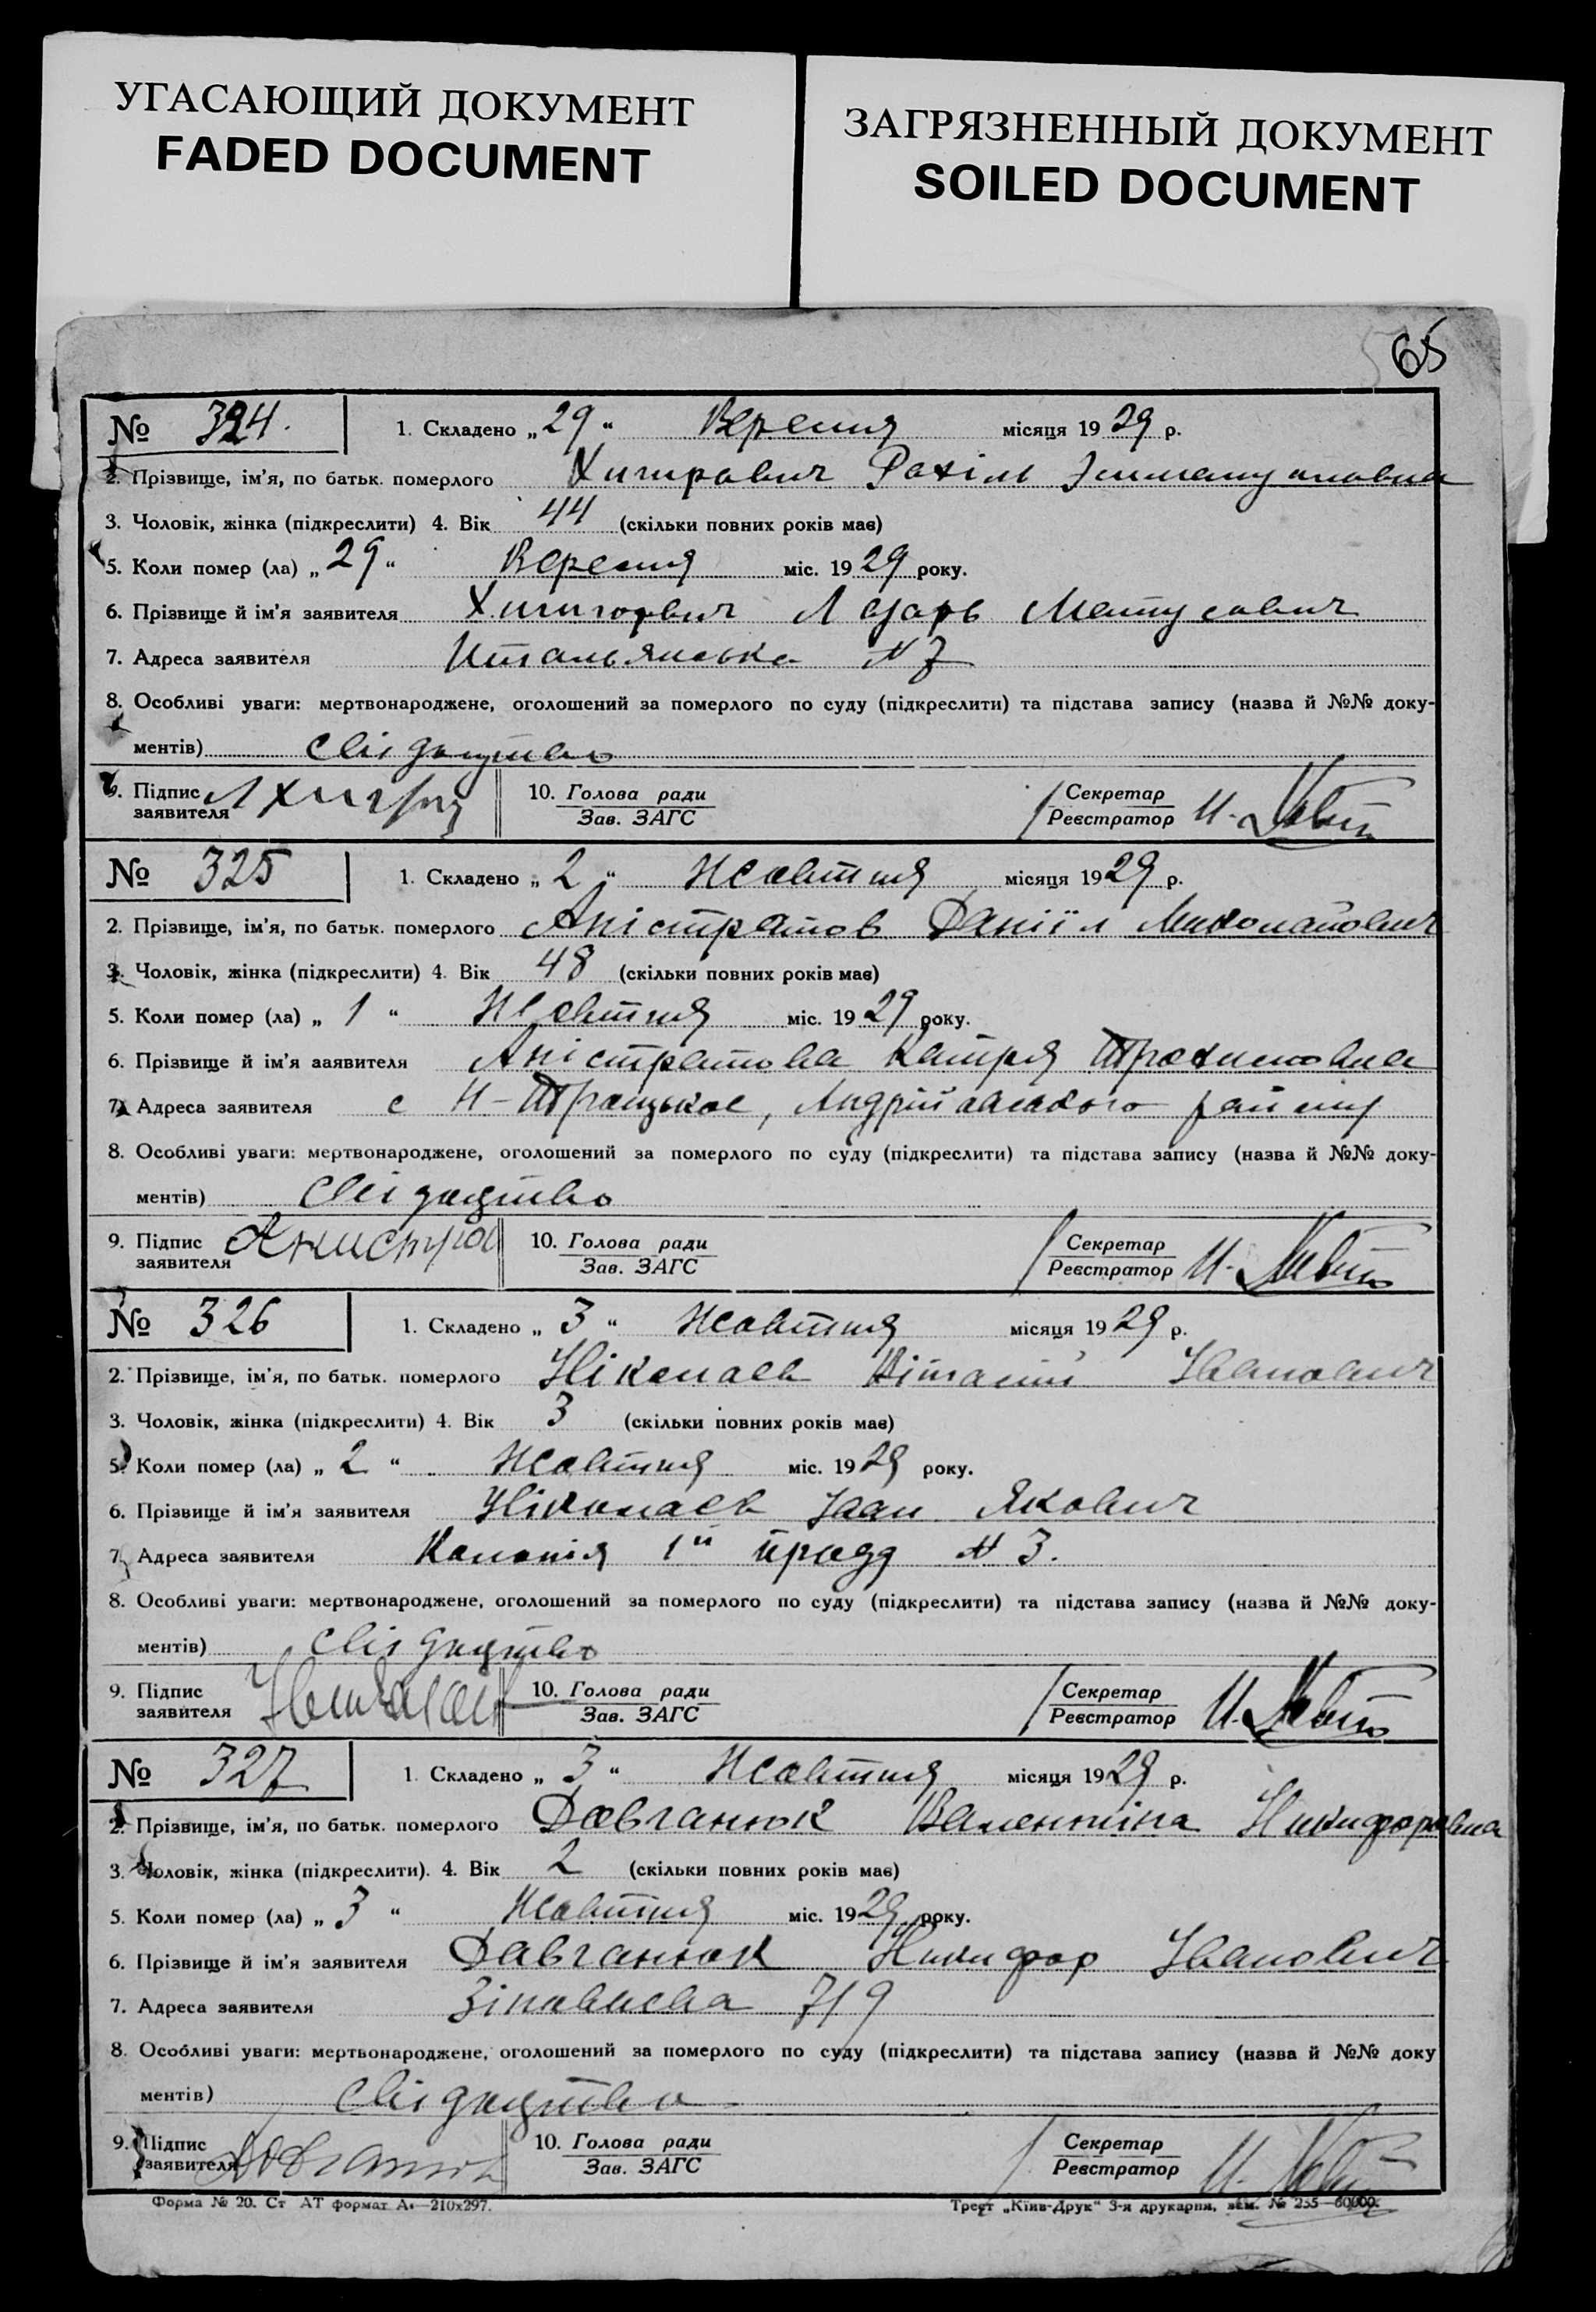 УГАСАЮЩИЙ ДОКУМЕНТ
FADED DOCUMENT
ЗАГРЯЗНЕННЫЙ ДОКУМЕНТ
SOILED DOCUMENT
65
№ 324. 1. Складено „29“ Вересня місяця 1929 р.
2. Прізвище, ім'я, по батьк. померлого Рахіль
3. Чоловік, жінка (підкреслити) 4. Вік 44 (скільки повних років має)
5. Коли помер (ла) „29“ Вересня міс. 1929 року.
6. Прізвище й ім'я заявителя Лазарь Матусович
7. Адреса заявителя Итальянська № 7
8. Особливі уваги: мертвонароджене, оголошений за померлого по суду (підкреслити) та підстава запису (назва й №№ доку-
ментів) свідоцтво
9. Підпис заявителя
10. Голова ради
Зав. ЗАГС
Секретар
Реєстратор
№ 325 1. Складено „2“ Жовтня місяця 1929 р.
2. Прізвище, ім'я, по батьк. померлого Аністратов Даніїл Миколайович
3. Чоловік, жінка (підкреслити) 4. Вік 48 (скільки повних років має)
5. Коли помер (ла) „1“ Жовтня міс. 1929 року.
6. Прізвище й ім'я заявителя Аністратова Катря
7. Адреса заявителя с Н-Троицькое, Андріївського району
8. Особливі уваги: мертвонароджене, оголошений за померлого по суду (підкреслити) та підстава запису (назва й №№ доку-
ментів) Свідоцтво
9. Підпис заявителя Анистра
10. Голова ради
Зав. ЗАГС
Секретар
Реєстратор
№ 326 1. Складено „3“ Жовтня місяця 1929 р.
2. Прізвище, ім'я, по батьк. померлого Ніколаєв Віталій Іванович
3. Чоловік, жінка (підкреслити) 4. Вік 3 (скільки повних років має)
5. Коли помер (ла) „2“ Жовтня міс. 1929 року.
6. Прізвище й ім'я заявителя Ніколаєв Іван Якович
7. Адреса заявителя Колонія 1й № 3.
8. Особливі уваги: мертвонароджене, оголошений за померлого по суду (підкреслити) та підстава запису (назва й №№ доку-
ментів) Свідоцтво
9. Підпис заявителя
10. Голова ради
Зав. ЗАГС
Секретар
Реєстратор
№ 327 1. Складено „3“ Жовтня місяця 1929 р.
2. Прізвище, ім'я, по батьк. померлого Довганюк Валентіна Никифоровна
3. Чоловік, жінка (підкреслити). 4. Вік 2 (скільки повних років має)
5. Коли помер (ла) „3“ Жовтня міс. 1929 року.
6. Прізвище й ім'я заявителя Довганюк Никифор Іванович
7. Адреса заявителя 7/9
8. Особливі уваги: мертвонароджене, оголошений за померлого по суду (підкреслити) та підстава запису (назва й №№ доку
ментів) Свідоцтво
9. Підпис заявителя
10. Голова ради
Зав. ЗАГС
Секретар
Реєстратор
Форма № 20. Ст АТ формат А4—210x297.
Трест „Київ-Друк“ 3-я друкарня, зам. № 255—60000.